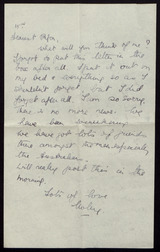 Dearest
what will you think of me?
forgot to put this letter in the
box after all. I put it out on
my bed & everything so as I
wouldn't forget but I did
forget after all. I am so sorry
there is no more news. We
have been
We have got lots of friends
now amongst the
the Australian
Will really post this in the
morning.
Lots of love